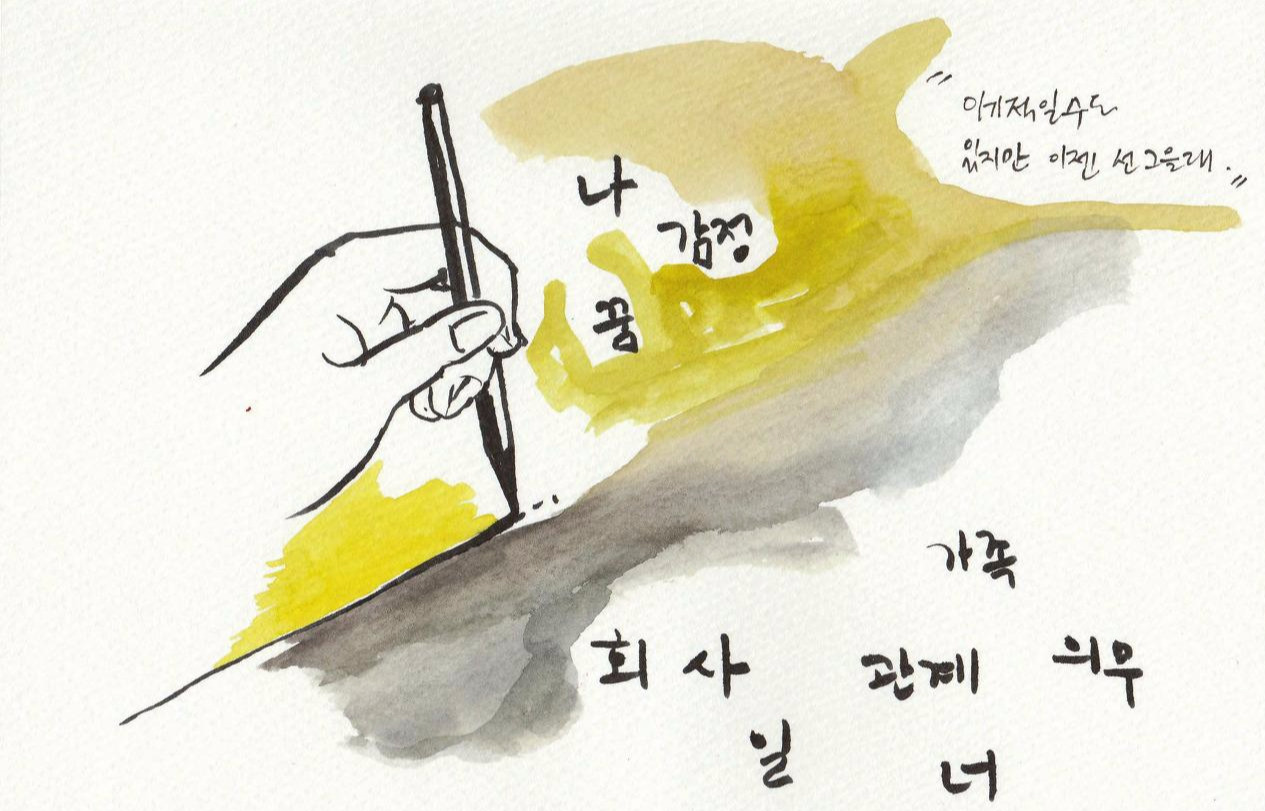 "이기적일수도
있지만 이젠 선 그을래."
나
감정
꿈
가족
회사
관계
의무
일
너